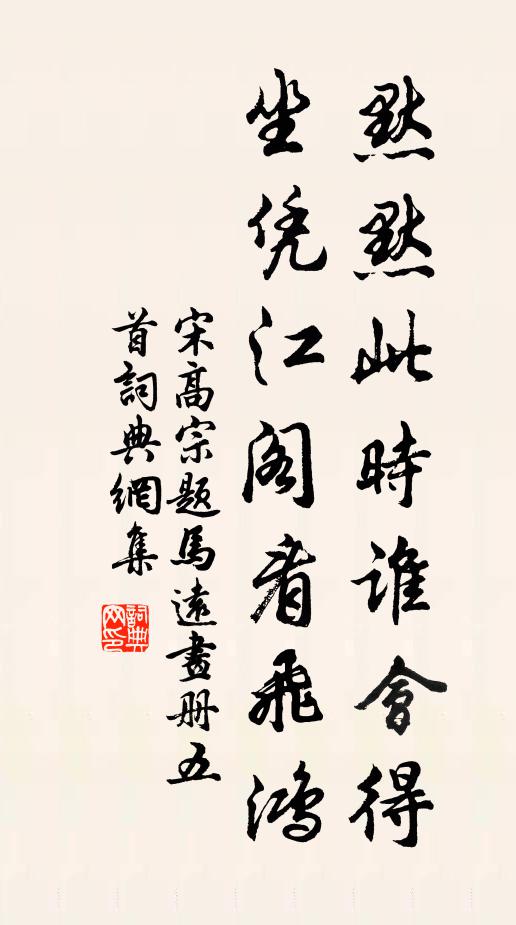 默默此時誰會得
坐凭江阁看飛鴻
宋高宗題馬遠畫册五
首詞典網集
詞典网印